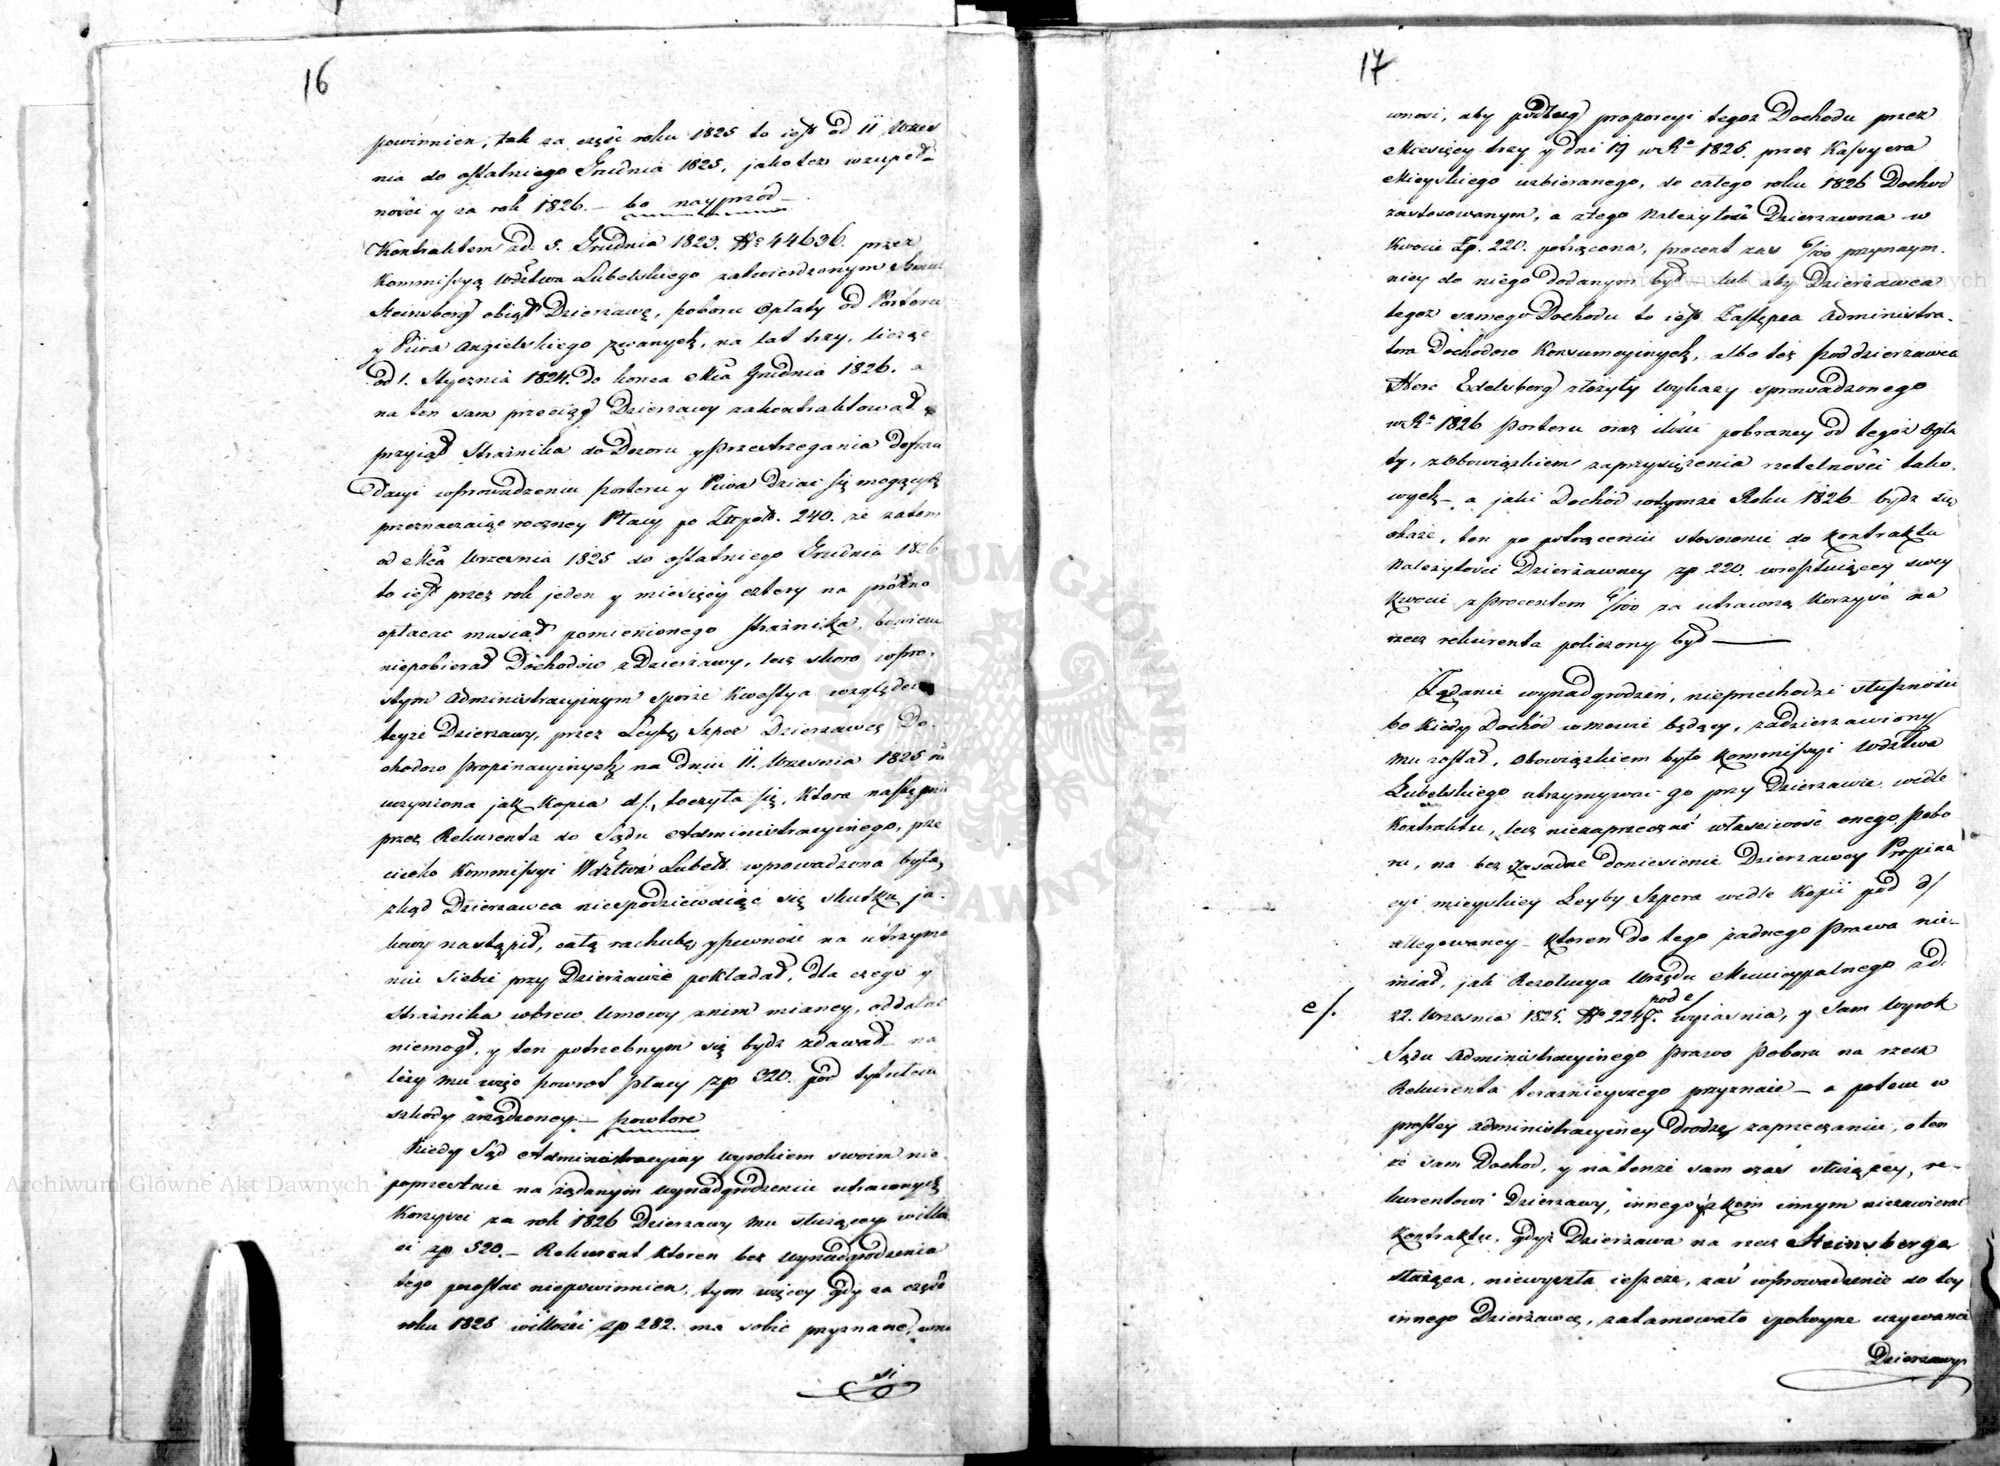 16
powinnien, tak za część roku 1825 to iest od 11 Wrzes
nia do ostatniego Grudnia 1825, jakoteż wzupeł-
ności y za rok 1826. — bo nayprzód —
Kontraktem zd. 5. Grudnia 1823. No 44636. przez
Kommissyą Wdztwa Lubelskiego zatwierdzonym
Steinsberg obiął Dzierzawę, poboru Opłaty od Porteru
y Piwa Angielskiego zwanych, na lat trzy, licząc
od 1. Stycznia 1824. do końca Mca Grudnia 1826. a
na ten sam przeciąg Dzierzawy zakontraktował
przyiął Strażnika do Dozoru y Przestrzegania defrau
dacyi wprowadzeniu Porteru y Piwa dziać się mogących
przeznaczaiąc roczney Płacy po Złtpols. 240. że zatem
od Mca Wrzesnia 1825 do ostatniego Grudnia 1826
to iest przez rok jeden y miesięcy cztery na próżno
opłacac musiał pomienionego Strażnika, bowiem
niepobierał Dochodów z Dzierżawy, lecz skoro wpro-
stym Administracyinym sporze kwestya względem
teyże Dzierzawy, przez Leybę Szper Dzierzawcę Do-
chodow Propinacyinych na dniu 11. Wrzesnia 1825 ro
uczyniona jak Kopia d/., toczyła się, Ktora następnie
przez Rekurenta do Sądu Administracyinego, prze
ciwko Kommissyi Wdztwa Lubels. wprowadzona była,
zkąd Dzierzawca niespodziewaiąc się skutku ja-
kowy nastąpił, całą rachubę y pewność na utrzyma
niu siebie przy Dzierżawie pokładał, dla czego y
Strażnika wbrew Umowy znim mianey, oddalać
niemogł, y ten potrzebnym się bydz zdawał — na
leży mu więc powrot płacy zp 320. pod tytułem
szkody zrządzoney. — powtore
Kiedy Sąd Administracyiny wyrokiem swoim nie
poprzestaie na żądanym wynadgrodzeniu utraconych
Korzyści za rok 1826 Dzierzawy mu służącey wilko
ci zp 520. — Rekurent ktoren bez wynadgrodzenia
tego zostać niepowinnien, tym więcey gdy za część
roku 1825 wilkości zp 282. ma sobie przyznane, wno
si
17
wnosi, aby podług proporcyi tegoż Dochodu przez
Miesięcy trzy y dni 19 w Ro 1825. przez Kassyera
Mieyskiego uzbieranego, do całego roku 1826 Dochod
zastosowanym, a z tego Należytość Dzierzawna w
Kwocie Zp. 220. potrącona, procent zas 6/100 przynaym-
niey do niego dodanym był — lub aby Dzierzawca
tegoz samego Dochodu to iest Zastępca Administra-
tora Dochodow Konsumcyinych, albo też poddzierżawca
Herc Edelsberg złożyły wykazy sprowadzonego
w Ru 1826 Porteru oraz ilości pobraney od tegoż Opła
ty, z Obowiązkiem zaprzysiężenia rzetelności tako-
wych — a jaki Dochód w tymże Roku 1826 bydz się
okaże, ten po potrąceniu stosownie do Kontraktu
Należytości Dzierżawney zp 220. wresztuiącey swey
Kwocie z Procentem 6/100 za utraconą Korzyść na
rzecz rekurenta policzony był —
Żądanie wynadgrodzeń, nieprzechodzi słuszności
bo kiedy Dochód w mowie będący, zadzierzawiony
mu został, Obowiązkiem było Kommissyi Wdztwa
Lubelskiego utrzymywać go przy Dzierzawie wedle
Kontraktu, lecz niezaprzeczać właściwość onego pobo
ru, na bez zasadne doniesienie Dzierzawcy Propina
cyi mieyskiey Leyby Szpera wedle Kopii pod d/
allegowaney — Ktoren do tego żadnego Prawa nie-
miał, jak Rezolucya Urzędu Municypalnego zd.
e/. 22. Wrzesnia 1825. No 2247. pod e/ wyiaśnia, y Sam Wyrok
Sądu Administracyinego prawo poboru na rzecz
Rekurenta teraznieyszego przyznaie — a potem w
prostey administracyiney drodze, zaprzeczaniu, o ten
że sam Dochod, y na tenże sam czas służący, re-
kurentowi Dzierzawy, innego zkim innym niezawierać
Kontraktu, gdyż Dzierzawa na rzecz Steinsberga
służąca, niewyszła ieszcze, zaś wprowadzenie do tey
innego Dzierżawcę, zatamowało spokoyne uzywanie
Dzierzawy